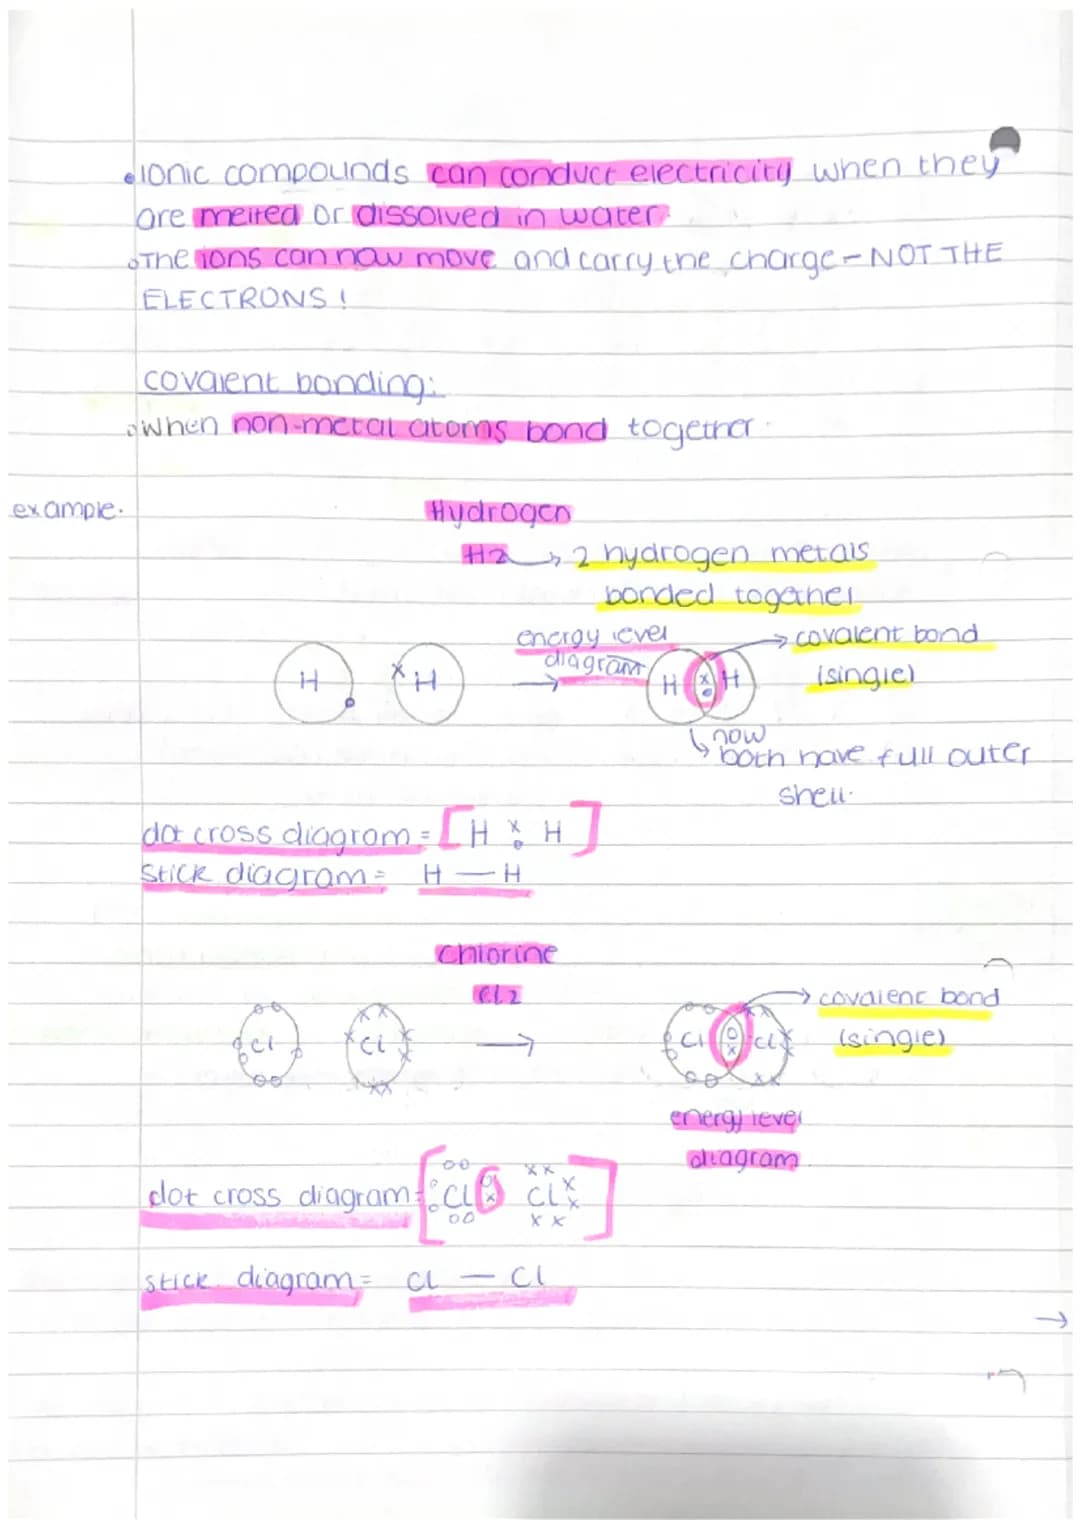 •Ionic compounds can conduct electricity when they
are melted or dissolved in water.
•The ions can now move and carry the charge - NOT THE
ELECTRONS!
covalent bonding:
•when non-metal atoms bond together.
example.
Hydrogen
H2 → 2 hydrogen metals
bonded together
energy level
diagram
→ covalent bond
(single)
H
x H
→
H x H
↳ now
both have full outer
shell.
dot cross diagram = [H x H]
stick diagram = H — H
Chlorine
Cl2
→ covalent bond
(single)
Cl
Cl
→
Cl
Cl
energy level
diagram
dot cross diagram = [Cl Cl]
stick diagram = Cl — Cl
→